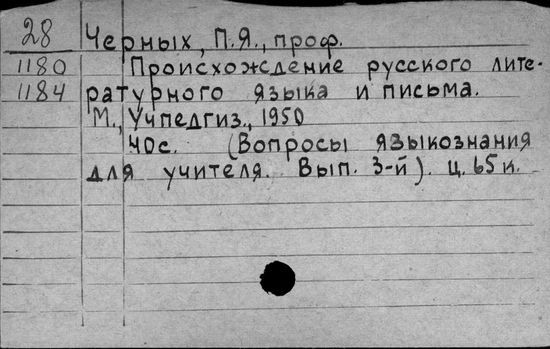 28 Черных, П.Я., проф.
1180 Происхождение русского лите-
1184 ратурного языка и письма.
М., Учпедгиз., 1950
40с. (Вопросы языкознания
для учителя. Вып. 3-й). ц. 65 к.